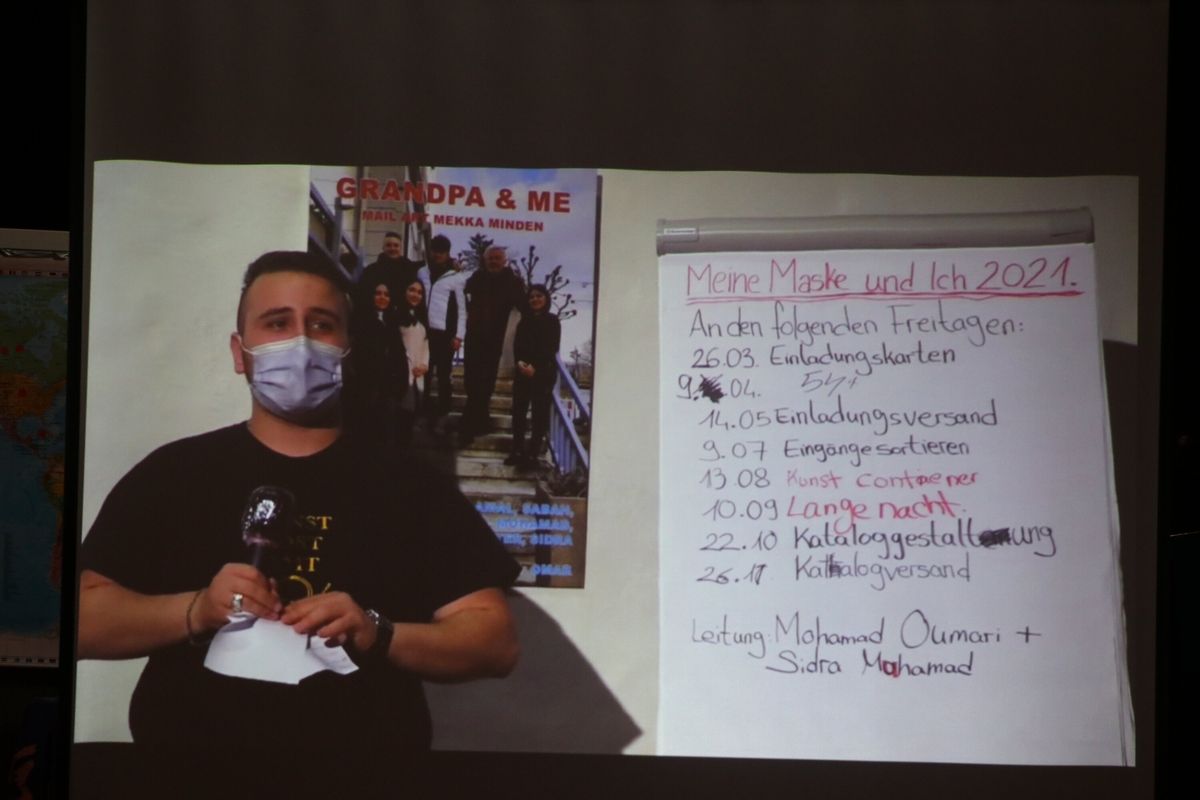 GRANDPA & ME
MAIL ART MEKKA MINDEN
SABAH,
MOHAMAD,
SIDRA
OMAR
Meine Maske und Ich 2021.
An den folgenden Freitagen:
26.03. Einladungskarten
9. 04. 54+
14.05 Einladungsversand
9.07 Eingänge sortieren
13.08 Kunst container
10.09 Lange nacht.
22.10 Kataloggestaltung
26.11 Katalogversand
Leitung: Mohamad Oumari +
Sidra Mohamad